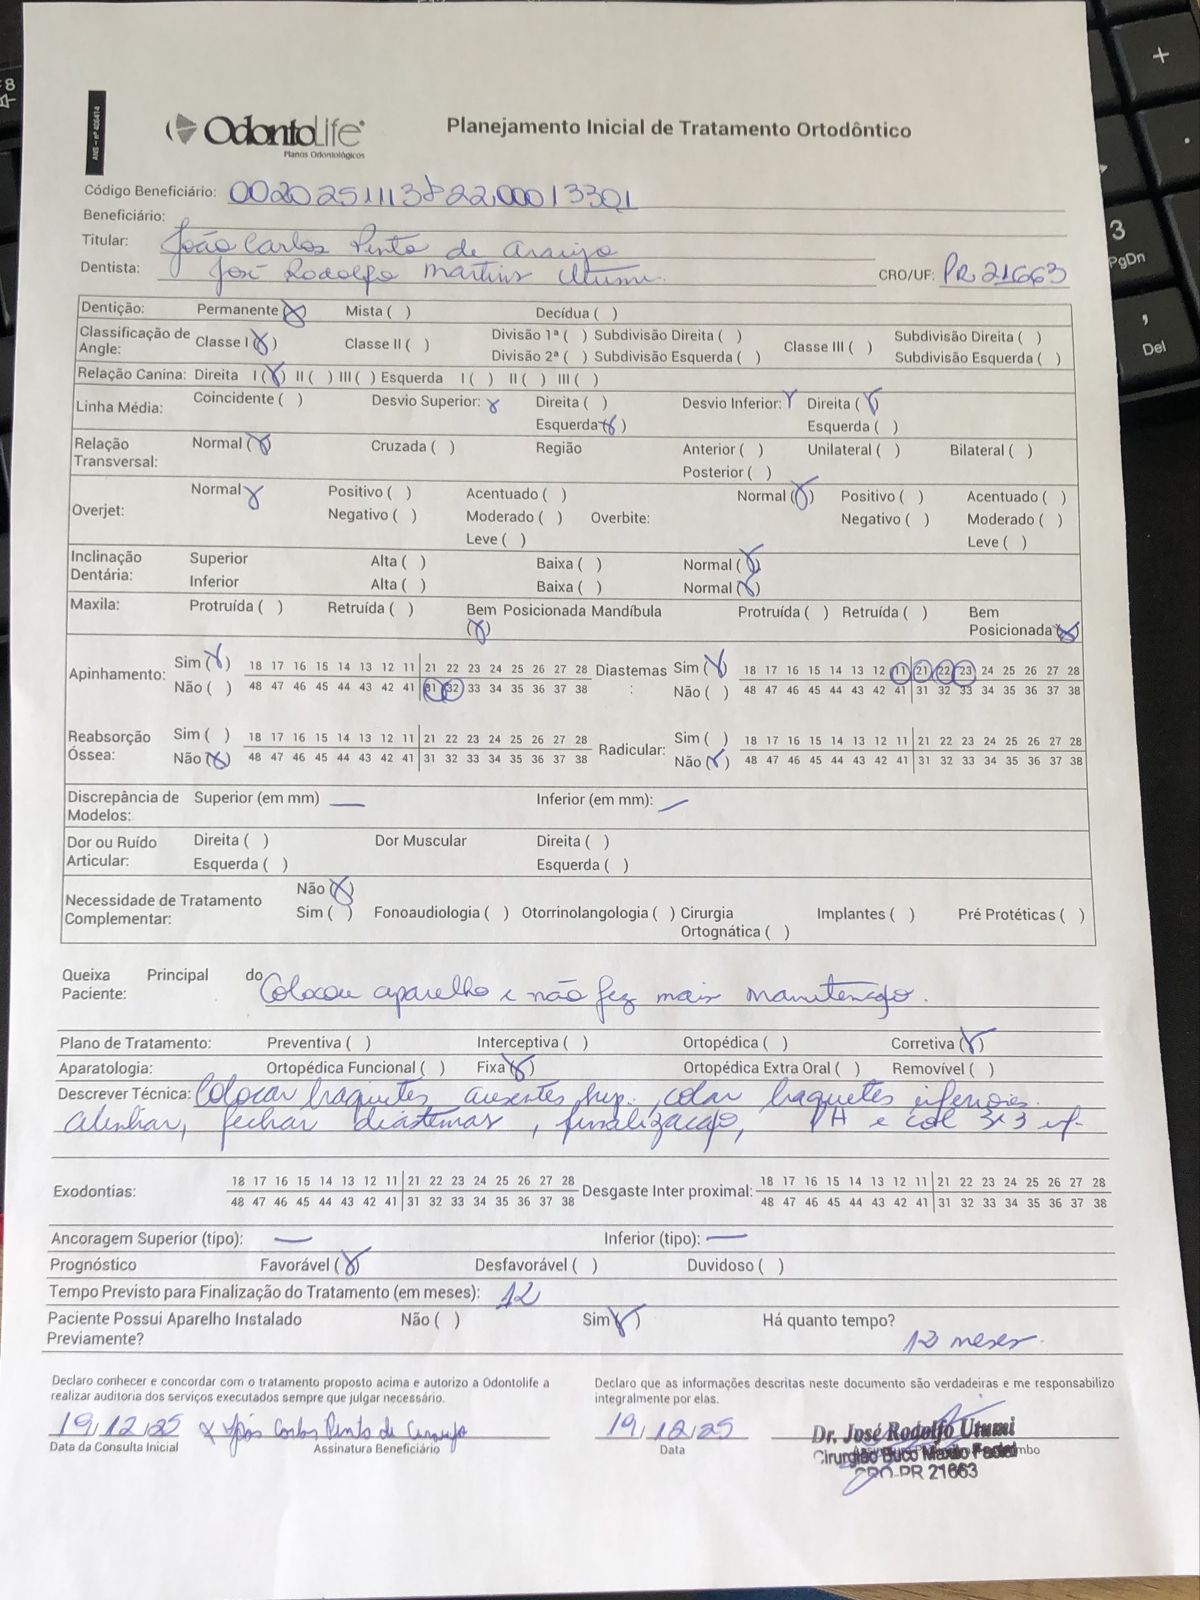 ANS – nº 406414
OdontoLife
Planos Odontológicos
Planejamento Inicial de Tratamento Ortodôntico
Código Beneficiário:
Beneficiário:
Titular: João Carlos Pinto de Araujo
Dentista: José Rodolfo Martins Utumi. CRO/UF: PR 21663
Dentição: Permanente (X) Mista ( ) Decídua ( )
Classificação de Angle: Classe I (X) Classe II ( ) Divisão 1ª ( ) Subdivisão Direita ( ) Classe III ( ) Subdivisão Direita ( )
Divisão 2ª ( ) Subdivisão Esquerda ( ) Subdivisão Esquerda ( )
Relação Canina: Direita I (X) II ( ) III ( ) Esquerda I ( ) II ( ) III ( )
Linha Média: Coincidente ( ) Desvio Superior: X Direita ( ) Desvio Inferior: X Direita (X)
Esquerda (X) Esquerda ( )
Relação Transversal: Normal (X) Cruzada ( ) Região Anterior ( ) Unilateral ( ) Bilateral ( )
Posterior ( )
Overjet: Normal X Positivo ( ) Acentuado ( ) Overbite: Normal (X) Positivo ( ) Acentuado ( )
Negativo ( ) Moderado ( ) Negativo ( ) Moderado ( )
Leve ( ) Leve ( )
Inclinação Dentária: Superior Alta ( ) Baixa ( ) Normal (X)
Inferior Alta ( ) Baixa ( ) Normal (X)
Maxila: Protruída ( ) Retruída ( ) Bem Posicionada (X) Mandíbula Protruída ( ) Retruída ( ) Bem Posicionada (X)
Apinhamento: Sim (X) 18 17 16 15 14 13 12 11 21 22 23 24 25 26 27 28 Diastemas: Sim (X) 18 17 16 15 14 13 12 11 21 22 23 24 25 26 27 28
Não ( ) 48 47 46 45 44 43 42 41 31 32 33 34 35 36 37 38 Não ( ) 48 47 46 45 44 43 42 41 31 32 33 34 35 36 37 38
Reabsorção Óssea: Sim ( ) 18 17 16 15 14 13 12 11 21 22 23 24 25 26 27 28 Radicular: Sim ( ) 18 17 16 15 14 13 12 11 21 22 23 24 25 26 27 28
Não (X) 48 47 46 45 44 43 42 41 31 32 33 34 35 36 37 38 Não (X) 48 47 46 45 44 43 42 41 31 32 33 34 35 36 37 38
Discrepância de Modelos: Superior (em mm) — Inferior (em mm): —
Dor ou Ruído Articular: Direita ( ) Dor Muscular Direita ( )
Esquerda ( ) Esquerda ( )
Necessidade de Tratamento Complementar: Não (X)
Sim ( ) Fonoaudiologia ( ) Otorrinolangologia ( ) Cirurgia Ortognática ( ) Implantes ( ) Pré Protéticas ( )
Queixa Principal do Paciente: Colocou aparelho e não fez mais manutenção.
Plano de Tratamento: Preventiva ( ) Interceptiva ( ) Ortopédica ( ) Corretiva (X)
Aparatologia: Ortopédica Funcional ( ) Fixa (X) Ortopédica Extra Oral ( ) Removível ( )
Descrever Técnica: Colocar braquetes ausentes sup., colar braquetes inferiores.
Alinhar, fechar diastemas, finalização, PH e col 3x3 inf.
Exodontias: 18 17 16 15 14 13 12 11 21 22 23 24 25 26 27 28 Desgaste Inter proximal: 18 17 16 15 14 13 12 11 21 22 23 24 25 26 27 28
48 47 46 45 44 43 42 41 31 32 33 34 35 36 37 38 48 47 46 45 44 43 42 41 31 32 33 34 35 36 37 38
Ancoragem Superior (tipo): — Inferior (tipo): —
Prognóstico Favorável (X) Desfavorável ( ) Duvidoso ( )
Tempo Previsto para Finalização do Tratamento (em meses): 12
Paciente Possui Aparelho Instalado Previamente? Não ( ) Sim (X) Há quanto tempo? 12 meses.
Declaro conhecer e concordar com o tratamento proposto acima e autorizo a Odontolife a
realizar auditoria dos serviços executados sempre que julgar necessário.
Declaro que as informações descritas neste documento são verdadeiras e me responsabilizo
integralmente por elas.
19/12/25 x João Carlos Pinto de Araujo 19/12/25
Data da Consulta Inicial Assinatura Beneficiário Data
Dr. José Rodolfo Utumi
Cirurgião Buco Maxilo Facial
CRO-PR 21663
8
3
PgDn
,
Del
+